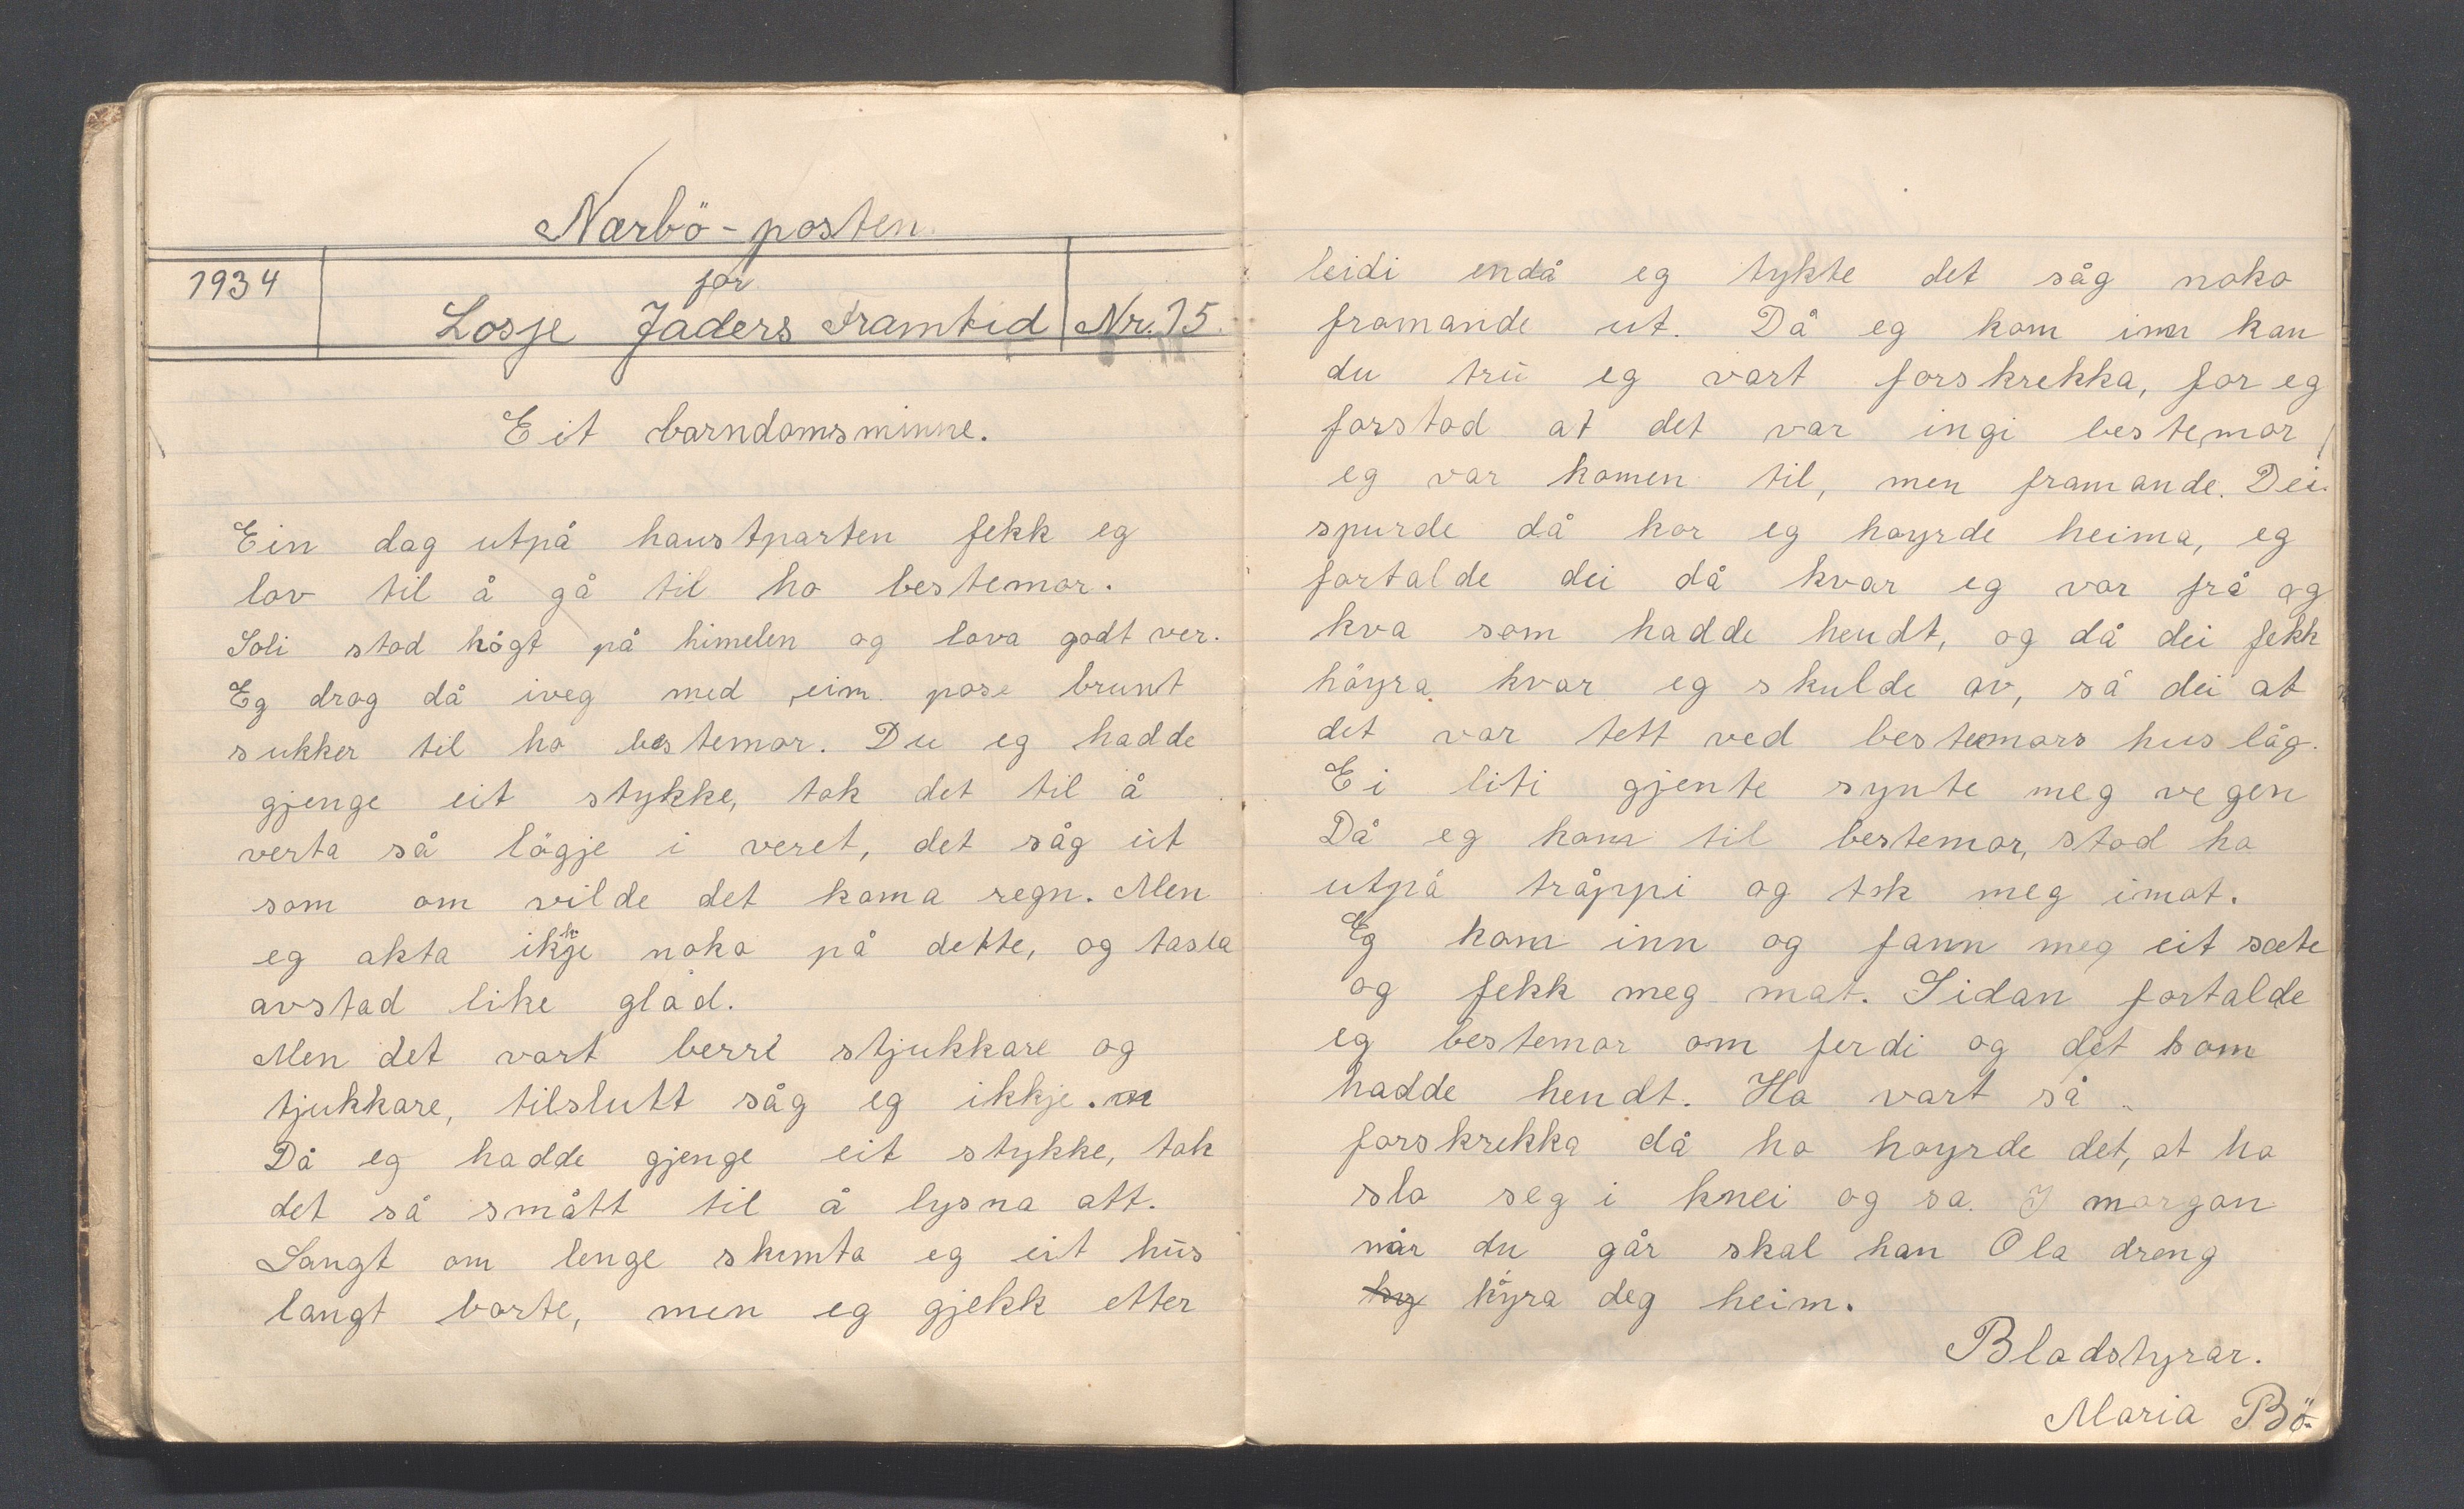 Nærbö-posten
1934
for
Losje Jaders Framtid
Nr. 15.
Eit barndomsminne.
Ein dag utpå haustparten fekk eg
lov til å gå til ho bestemor.
Soli stod högt på himelen og lova godt ver.
Eg drog då iveg med ein pose brunt
sukker til ho bestemor. Du eg hadde
gjenge eit stykke, tok det til å
verta så lögje i veret, det såg ut
som om vilde det koma regn. Men
eg akta ikkje noko på dette, og tasla
avstad like glad.
Men det vart berre stjukkare og
tjukkare, tilslutt såg eg ikkje.
Då eg hadde gjenge eit stykke, tok
det så smått til å lysna att.
Langt om lenge skimta eg eit hus
langt borte, men eg gjekk etter
leidi endå eg tykte det såg noko
framande ut. Då eg kom inn kan
du tru eg vart forskrekka, for eg
forstod at det var ingi bestemor
eg var komen til, men framande. Dei
spurde då kor eg høyrde heima, eg
fortalde dei då kvar eg var frå og
kva som hadde hendt, og då dei fekk
höyra kvar eg skulde av, så dei at
det var tett ved bestemors hus låg.
Ei liti gjente synte meg vegen
Då eg kom til bestemor, stod ho
utpå tråppi og tok meg imot.
Eg kom inn og fann meg eit sæte
og fekk meg mat. Sidan fortalde
eg bestemor om ferdi og det som
hadde hendt. Ho vart så
forskrekka då ho høyrde det, at ho
slo seg i knei og sa. I morgon
når du går skal han Ola dreng
köyra deg heim.
Bladstyrar.
Maria Bö